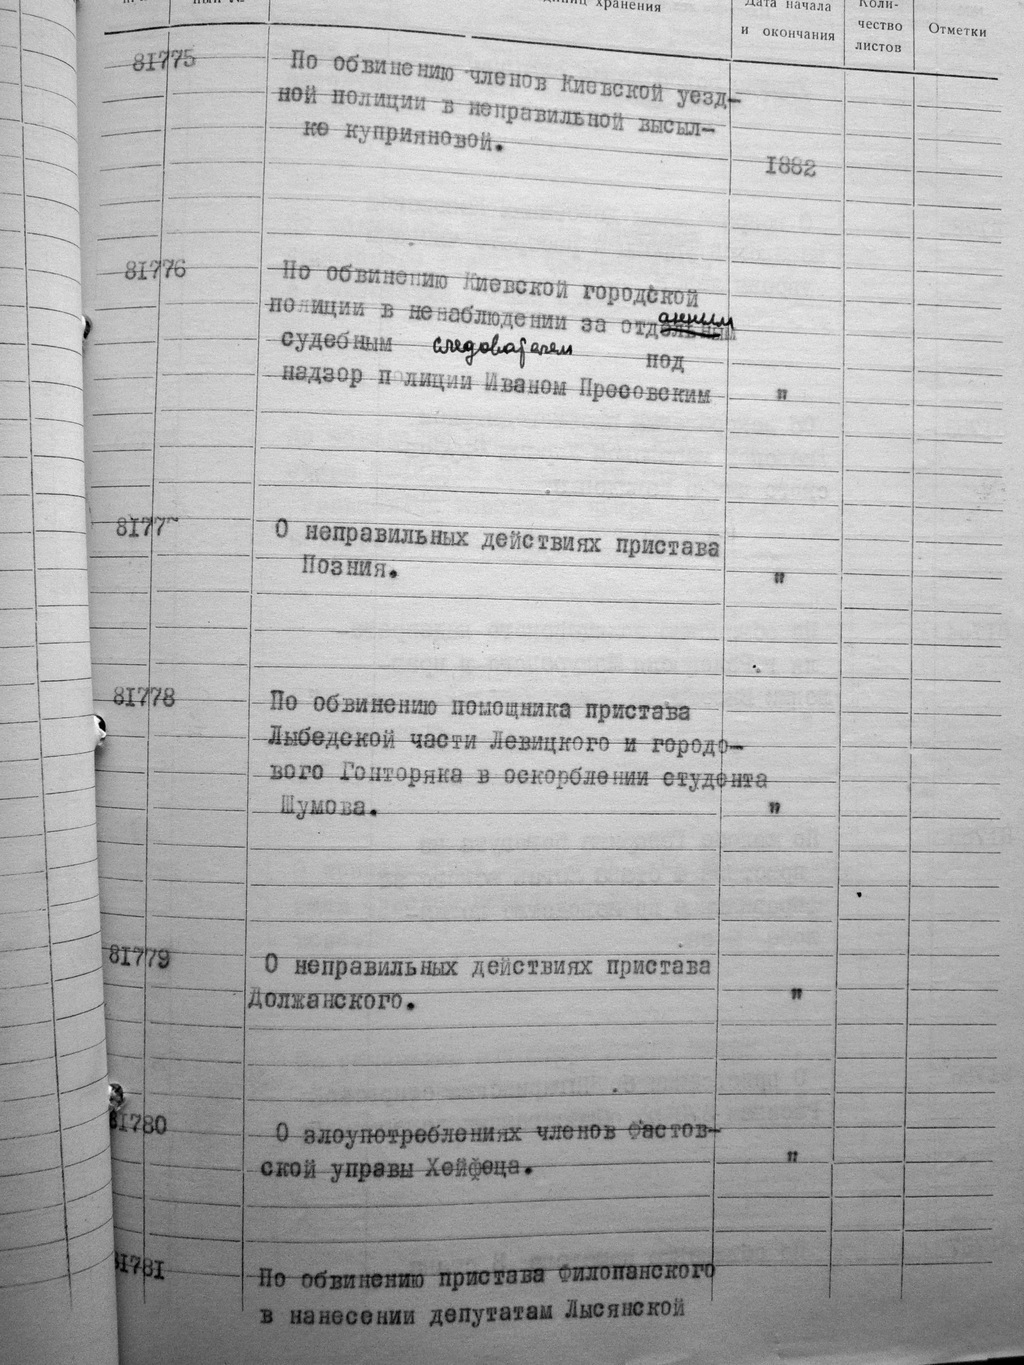 единиц хранения
Дата начала и окончания
Коли-
чество
листов
Отметки
81775
По обвинению членов Киевской уезд-
ной полиции в неправильной высыл-
ке куприяновой.
1882
81776
По обвинению Киевской городской
полиции в ненаблюдении за отдельным
анным
судебным следователем под
надзор полиции Иваном Пресовским "
8177
О неправильных действиях пристава
Позния. "
81778
По обвинению помощника пристава
Лыбедской части Левицкого и городо-
вого Гонторяка в оскорблении студента
Шумова. "
81779
О неправильных действиях пристава
Должанского. "
81780
О злоупотреблениях членов Фастов-
ской управы Хейфеца. "
81781
По обвинению пристава Филопанского
в нанесении депутатам Лысянской